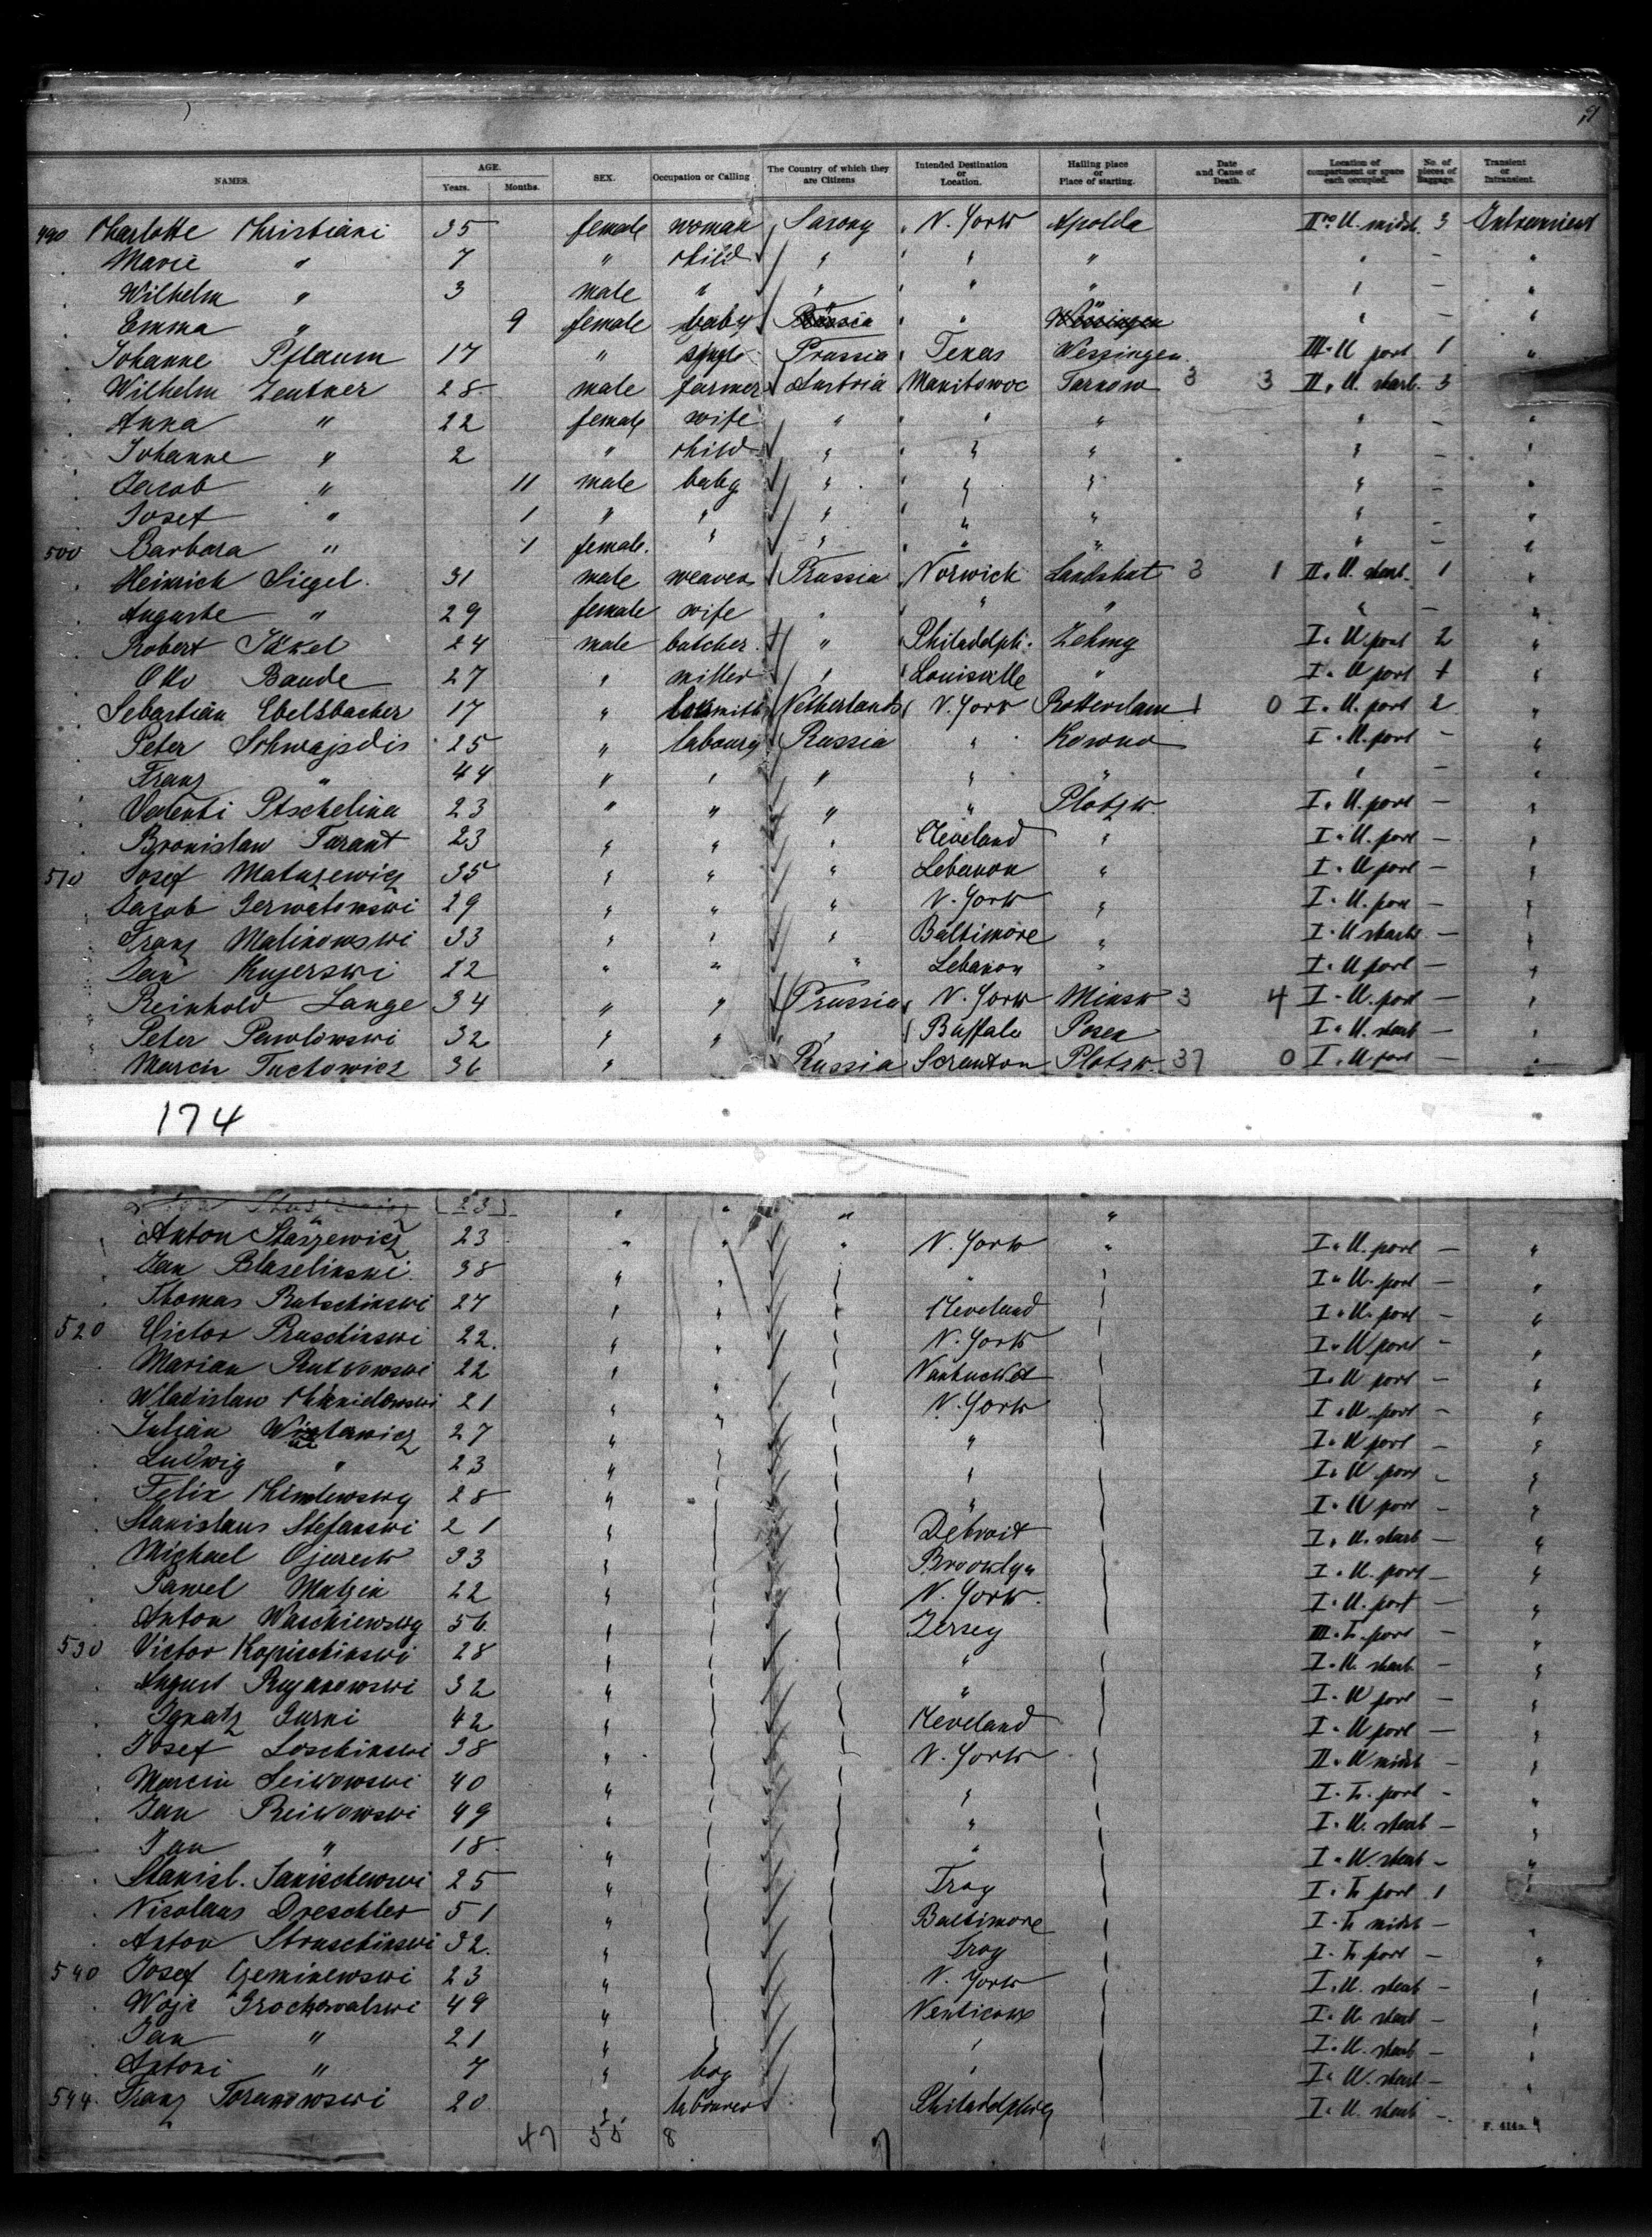 NAMES. AGE. Years. Months. SEX. Occupation or Calling The Country of which they are Citizens Intended Destination or Location. Hailing place or Place of starting. Date and Cause of Death. Location of compartment or space each occupied. No. of pieces of Baggage. Transient or Intransient.
490 Charlotte Christiani 35 female woman Saxony N. York Apolda II U. midsh. 3 Intransient
Marie " 7 " child " " " " — "
Wilhelm " 3 male " " " " " — "
Emma " 9 female baby " " —  "
Johanne Pflaum 17 " single Prussia Texas Wessingen III U port 1 "
Wilhelm Zentner 28 male farmer Austria Manitowoc Tarnow 3 3 II. U. starb. 3
Anna " 22 female wife " " " " — "
Johanne " 2 " child " " " " — "
Jacob " 11 male baby " " " " — "
Josef " 1 " " " " " " — "
500 Barbara " 1 female. " " " " " — "
Heinrich Siegel. 31 male weaver Prussia Norwick Landshut 3 1 II. U. starb. 1 "
Auguste " 29 female wife " " " " — "
Robert Jäkel 24 male butcher " Philadelph. Zehmg I. U port 2 "
Otto Baude 27 " miller " Louisville " I. U port 1 "
Sebastian Ebelsbacher 17 " Netherlands N. York Rotterdam 1 0 I. U. port 2 "
Peter Schwajsdis 25 " labourer Russia " Kowno I. U. port — "
Franz " 44 " " " " " " — "
Valenti Ptschelina 23 " " " " Plotzk. I. U. port — "
Bronislaw Tarant 23 " " " Cleveland " I. U. port — "
510 Josef Matuzewicz 35 " " " Lebanon " I. U port — "
Jacob Gerwatowski 29 " " " N. York " I. U. port — "
Franz Malinowski 33 " " " Baltimore " I. U starb. — "
Jan Kujerski 22 " " " Lebanon " I. U port — "
Reinhold Lange 34 " " Prussia N. York Minsk 3 4 I. U. port — "
Peter Pawlowski 32 " " " Buffalo Posen I. U. starb — "
Marcin Tuchowicz 36 " Russia Scranton Plotzk. 37 0 I. U port —
174
23 " " " "
Anton Staszewicz 23 " " " N. York " I. U. port — "
Jan Blaselinski. 38 " " " I. U. port — "
Thomas Rutschinski 27 " " Cleveland I. U. port — "
520 Victor Pruschinski 22. " " N. York I. U port — "
Marian Rutkowski 22 " " Nantucket I. U port — "
Wladislaw 21 " " N. York I. U. port — "
Julian 27 " " I. U port — "
Ludwig " 23 " " I. U port — "
Felix 28 " " I. U port — "
Stanislaus Stefanski 21 " Detroit I. U. starb — "
Michael 33 " Brooklyn I. U. port — "
Pawel Matzin 22 " N. York. I. U. port — "
Anton Waschiewsky 56. " Jersey III. L. port — "
530 Victor Kopischinski 28 " " I. U. starb. — "
August Rujanowski 32 " " I. U port — "
Ignatz Gurni 42 " Cleveland I. U port — "
Josef Loschinski 38 " N. York II. U midsh — "
Marcin Leikowski 40 " " I. L. port - "
Jan Reikowski 49 " " I. U. starb — "
Jan " 18. " " I. U. starb - "
Stanisl. Janischewski 25 " Troy I. L port 1 "
Nicolaus Dreschler 51 " Baltimore I. L midsh — "
Anton Struschinski 32. " Troy I. L port — "
540 Josef Geminewski 23 " N. York I. U. starb — "
Wojc Grochowalski 49 " I. U. starb — "
Jan " 21 " " I. U. starb — "
Antoni " 7 " boy " I. U. starb — "
544. Franz Toranowski 20 " labourer Philadelphia I. U. starb — "
47 55 8 F. 414a.